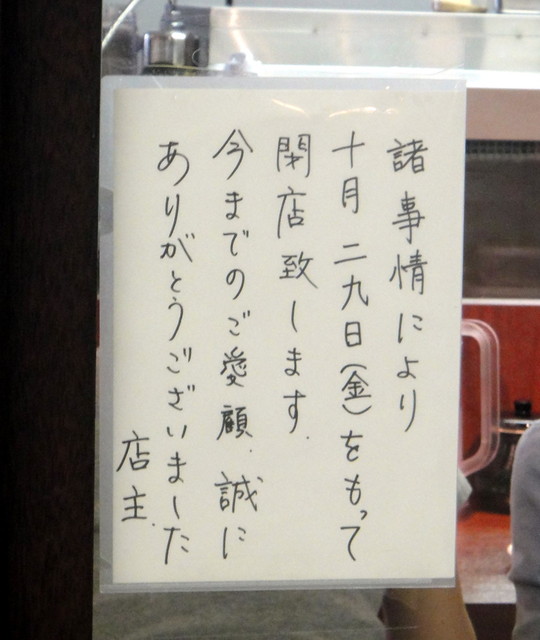 諸事情により
十月二九日(金)をもって
閉店致します.
今までのご愛顧.誠に
ありがとうございました
店主.